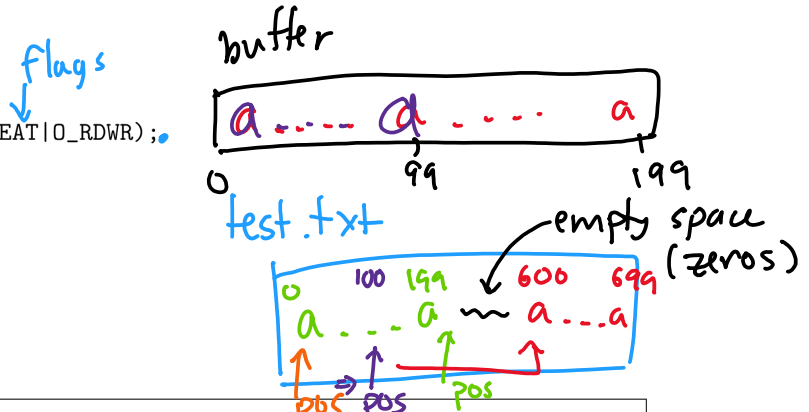 flags
EAT|O_RDWR);
buffer
a ..... a ..... a
0 99 199
test.txt
empty space
(zeros)
0 100 199 600 699
a ... a ~~ a ... a
pos pos pos